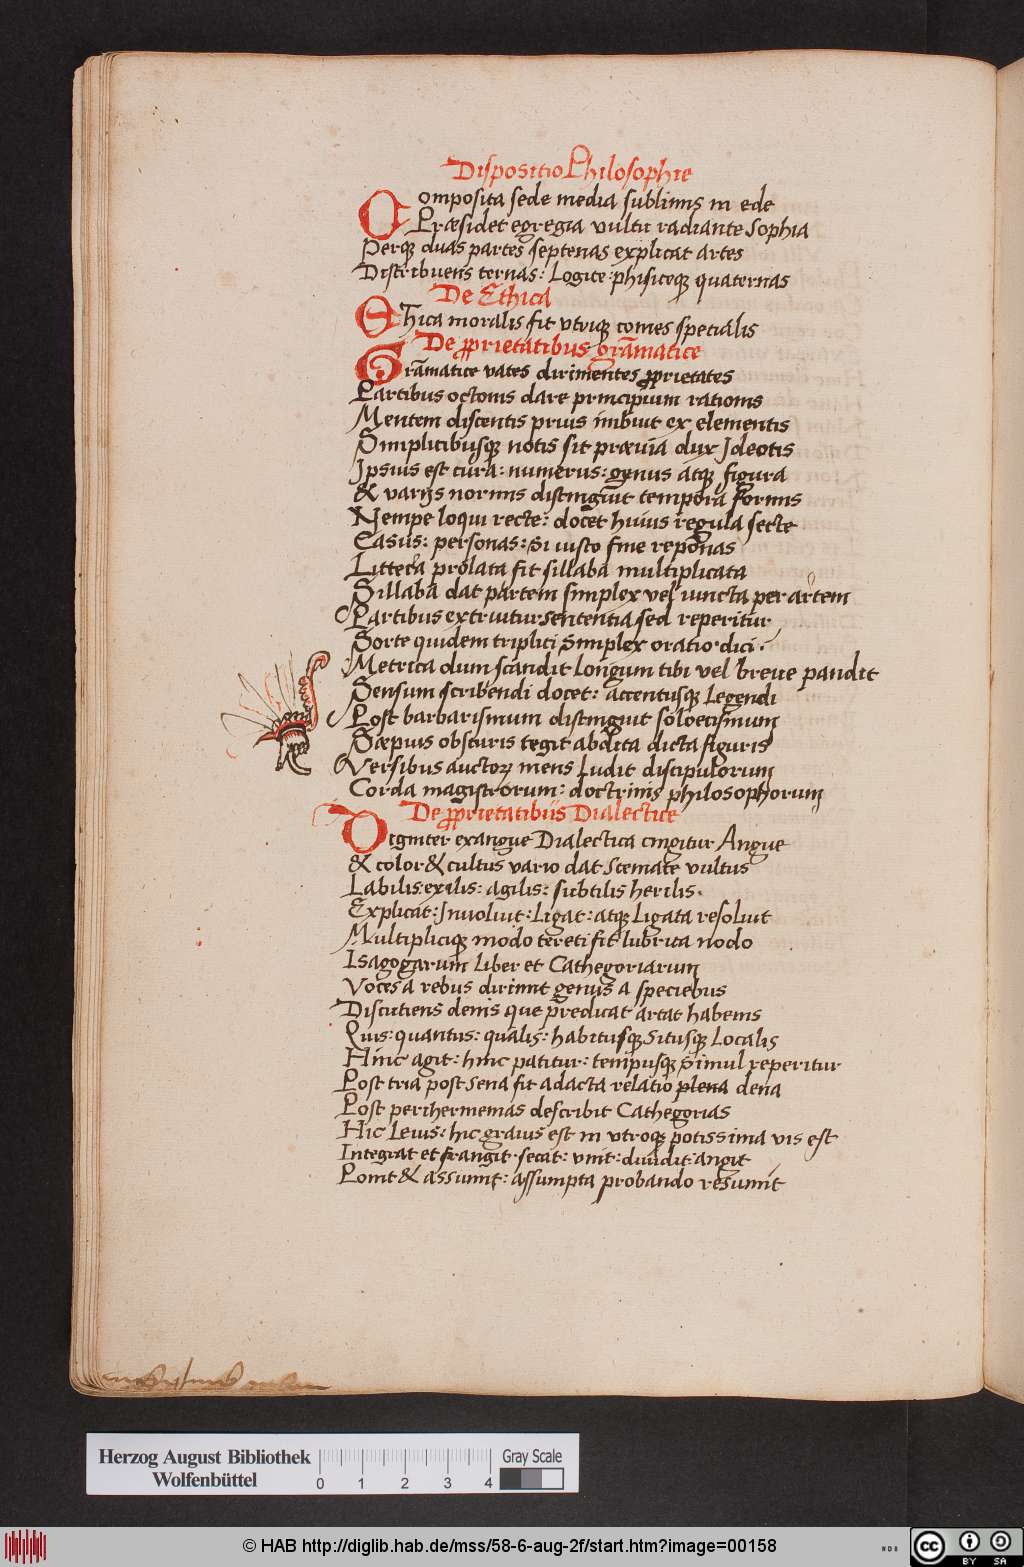 Dispositio Philosophie
Composita sede media sublimis in ede
Præsidet egregia vultu radiante Sophia
Perq duas partes septenas explicat artes
Distribuens ternas: Logice: phisiceq quaternas
De Ethica
EThica moralis fit vtriq comes specialis
De pprietatibus grāmatice
Grāmatice vates dirimentes pprietates
Partibus octonis dare principium rationis
Mentem discentis prius imbuit ex elementis
Simplicibusq notis sit prævia dux Ideotis
Ipsius est cura: numerus: genus atq figura
& varijs normis distinguit tempora formis
Nempe loqui recte: docet huius regula secte
Casus: personas: Si iusto fine reponas
Littera prolata fit sillaba multiplicata
Sillaba dat partem simplex vel iuncta per artem
Partibus extruitur sententia sed reperitur
Sorte quidem triplici Simplex oratio dici.
Metrica dum scandit Longum tibi vel breue pandit
Sensum scribendi docet: accentusq Legendi
Post barbarismum distinguit soloecismum
Sæpius obscuris tegit abdita dicta figuris
Versibus auctorꝝ mens Ludit discipulorum
Corda magistrorum: doctrinis philosophorum
De pprietatibus Dialectice
exangue Dialectica cingitur Angue
& color & cultus vario dat Scemate vultus
Labilis: exilis: agilis: subtilis herilis.
Explicat: Inuoluit: Ligat: atq Ligata resoluit
Multipliciq modo tereti fit lubrica nodo
Isagogarum Liber et Cathegoriarum
Voces a rebus dirimit genus a speciebus
Discutiens denis que predicat artat habenis
Quis: quantus: qualis: habitusq Situsq Localis
Hinc agit: hinc patitur: tempusq Simul reperitur
Post tria post sena fit adacta relatio plena dena
Post perihermenias describit Cathegorias
Hic Leuis: hic grauis est in vtroq potissima vis est
Integrat et frangit. secat: vnit: diuidit: angit
Ponit & assumit: assumpta probando resumit
Herzog August Bibliothek
Wolfenbüttel
0 1 2 3 4
Gray Scale
© HAB http://diglib.hab.de/mss/58-6-aug-2f/start.htm?image=00158
cc BY SA